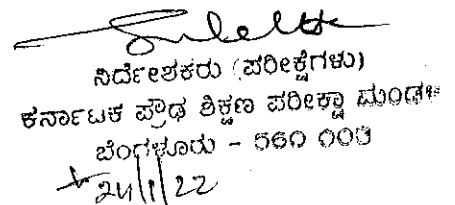 ನಿರ್ದೇಶಕರು (ಪರೀಕ್ಷೆಗಳು)
ಕರ್ನಾಟಕ ಪ್ರೌಢ ಶಿಕ್ಷಣ ಪರೀಕ್ಷಾ ಮಂಡಳಿ
ಬೆಂಗಳೂರು - 560 003
24/1/22